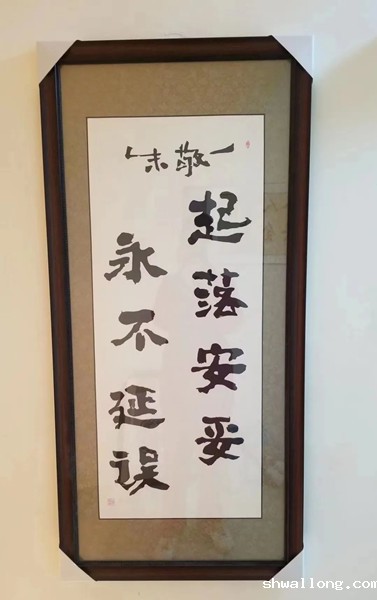 朱敬一
起落安妥
永不延误
shwallong.com